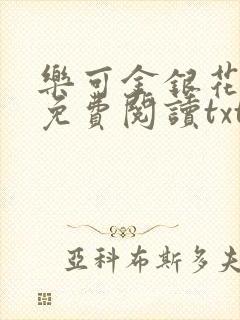 樂可金銀花
免費閱讀txt
亞科布斯多夫